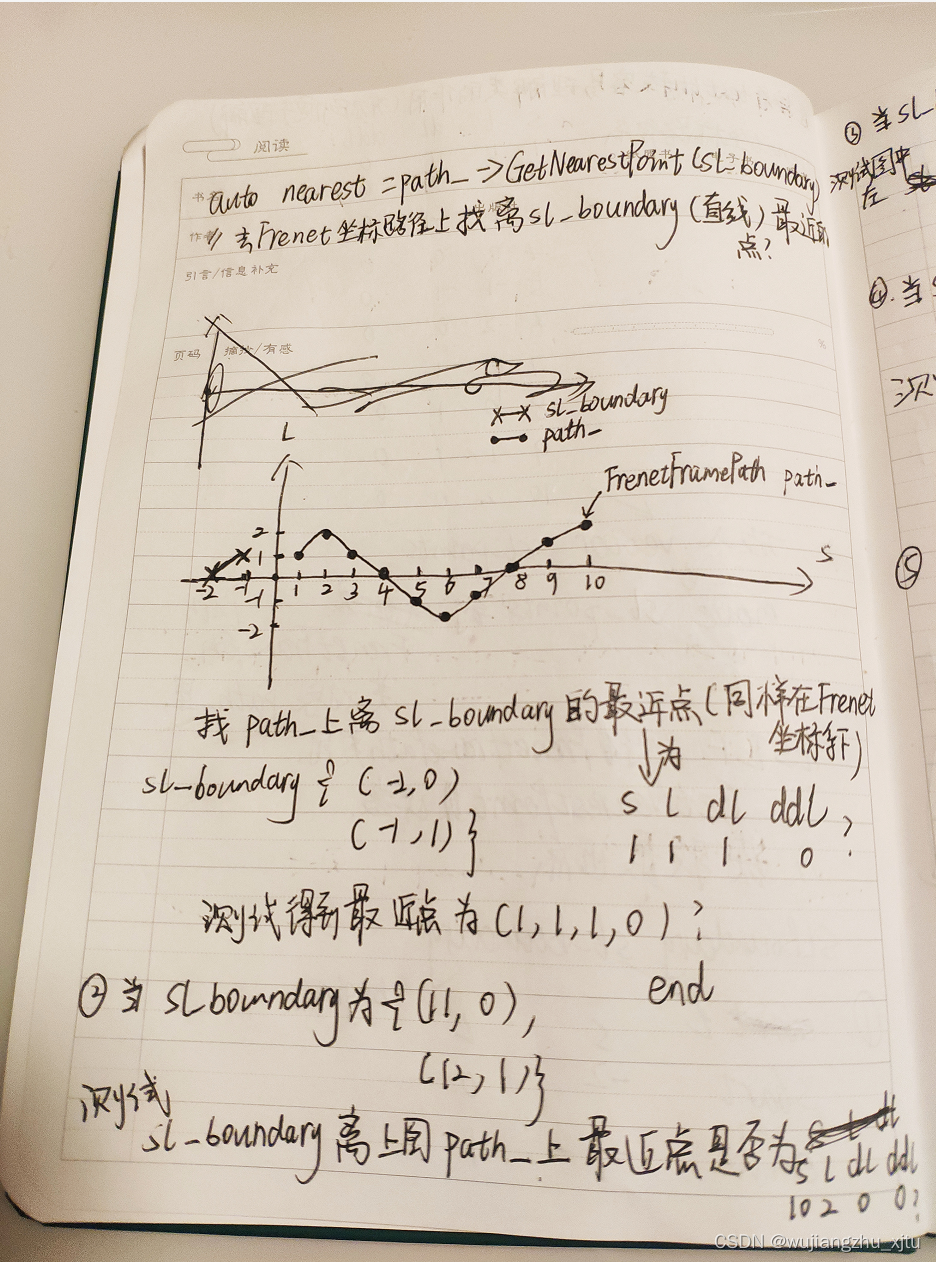 阅读
书名
auto nearest = path_->GetNearestPoint(SL_boundary)
作者
// 去Frenet坐标路径上找离SL_boundary(直线)最近的
点?
引言/信息补充
页码 摘抄/有感
sl_boundary
path_
L
FrenetFramePath path_
S
2
1
-2 -1 1 2 3 4 5 6 7 8 9 10
-1
-2
找path_上离SL_boundary的最近点(同样在Frenet
坐标系下)
为
sl_boundary { (-2,0)
(-1,1)}
S L dl ddl
1 1 1 0 ?
测试得到最近点为(1,1,1,0)?
end
② 当SLboundary为{(11,0),
(12,1)}
测试
sl_boundary离上图path_上最近点是否为
S L dl ddl
10 2 0 0?
③ 当SL
测试图中
左
④. 当
测
⑤
CSDN @wujiangzhu_xjtu